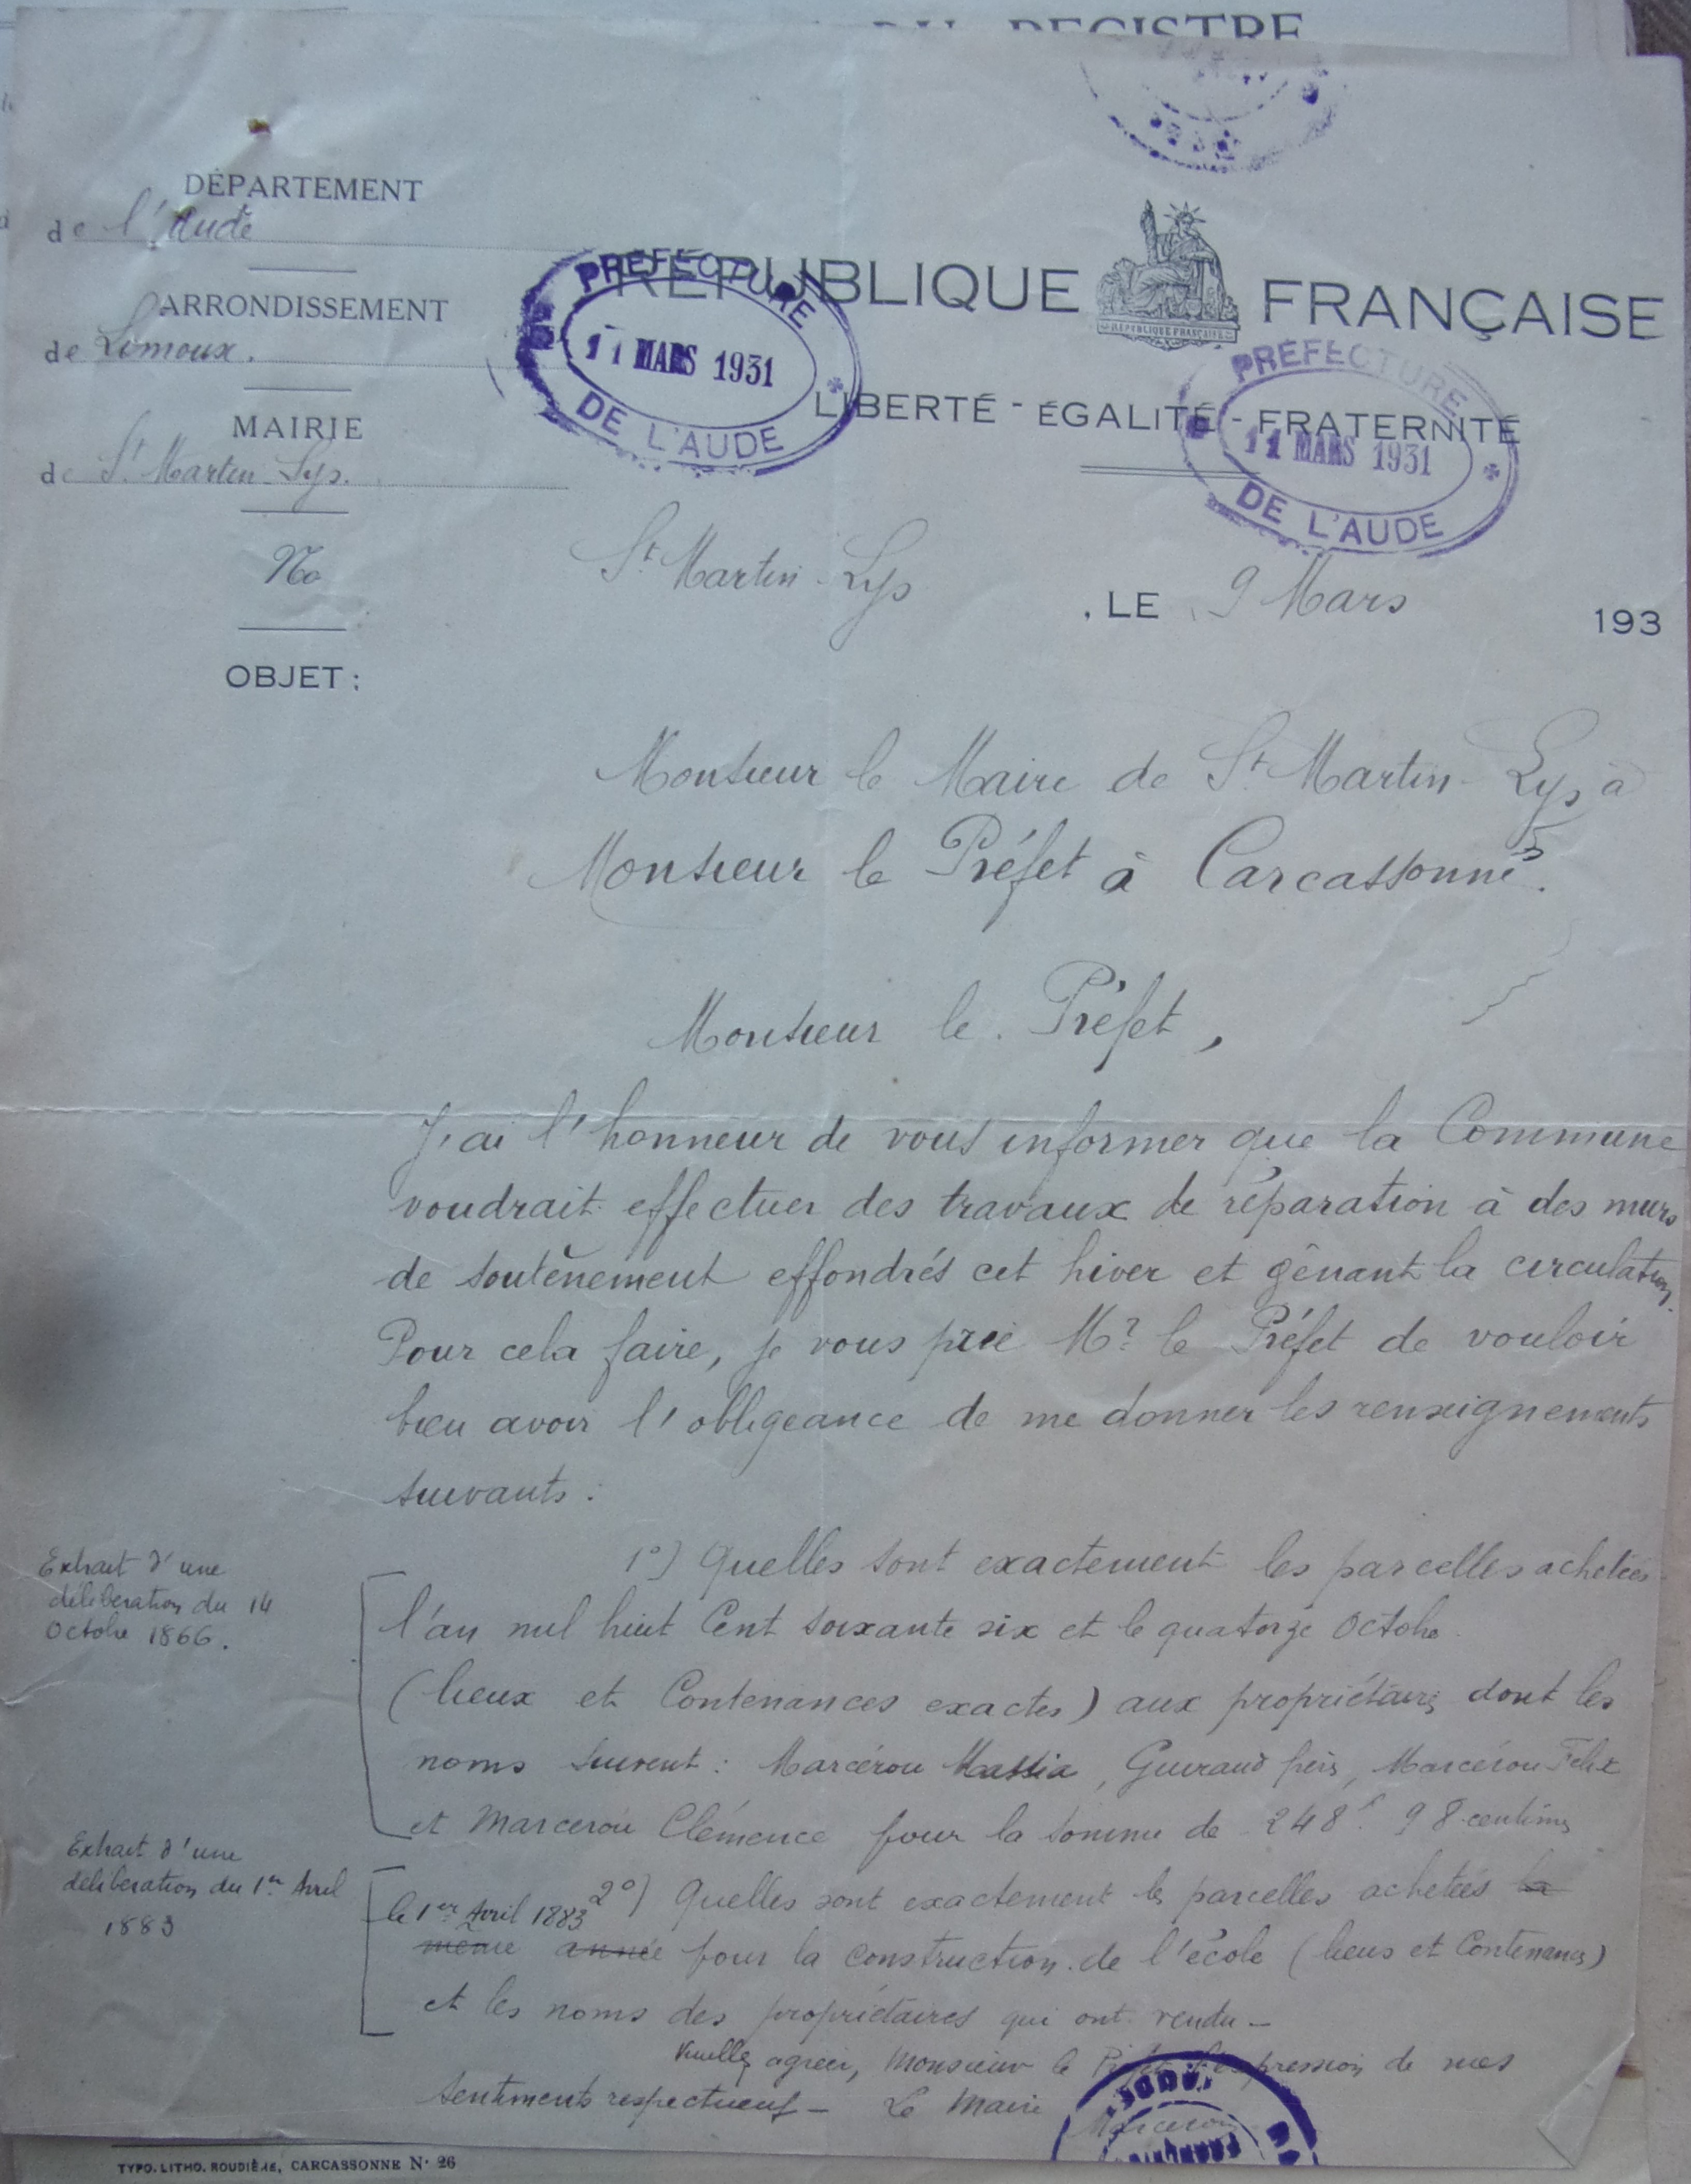 REGISTRE
DÉPARTEMENT
de l'Aude
ARRONDISSEMENT
de Limoux.
MAIRIE
de St Martin-Lys.
No
OBJET :
RÉPUBLIQUE FRANÇAISE
RÉPUBLIQUE FRANÇAISE
LIBERTÉ - ÉGALITÉ - FRATERNITÉ
PRÉFECTURE
11 MARS 1931
DE L'AUDE
PRÉFECTURE
11 MARS 1931
DE L'AUDE
St Martin-Lys , LE 9 Mars 193
Monsieur le Maire de St Martin-Lys à
Monsieur le Préfet à Carcassonne.
Monsieur le Préfet,
J'ai l'honneur de vous informer que la Commune
voudrait effectuer des travaux de réparation à des murs
de soutènement effondrés cet hiver et gênant la circulation.
Pour cela faire, je vous prie Mr le Préfet de vouloir
bien avoir l'obligeance de me donner les renseignements
suivants :
Extrait d'une
délibération du 14
Octobre 1866.
1°) Quelles sont exactement les parcelles achetées
l'an mil huit Cent soixante six et le quatorze Octobre
(lieux et Contenances exactes) aux propriétaires dont les
noms suivent : Marcérou Massia, Guiraud frères, Marcérou Félix
et Marcerou Clémence pour la somme de 248f. 98 centimes
Extrait d'une
délibération du 1er Avril
1883
2°) Quelles sont exactement les parcelles achetées la
le 1er Avril 1883
même année pour la construction de l'école (lieux et Contenances)
et les noms des propriétaires qui ont vendu -
Veuillez agréer, Monsieur le Préfet l'expression de mes
sentiments respectueux - Le Maire
Marcerou
TYPO. LITHO. ROUDIÈRE, CARCASSONNE N° 26